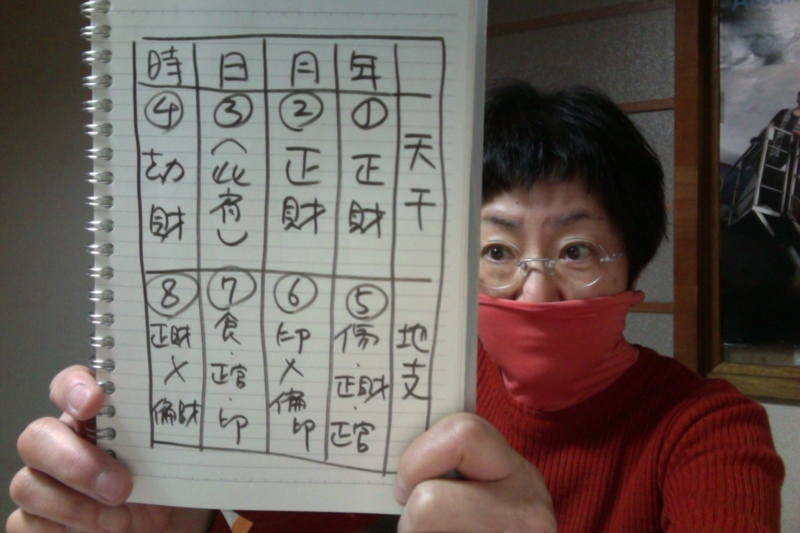 年
月
日
時
天干
① 正財
② 正財
③
④ 劫財
地支
⑤ 傷・正財・正官
⑥ 印×偏印
⑦ 食・正官・印
⑧ 正財×偏財